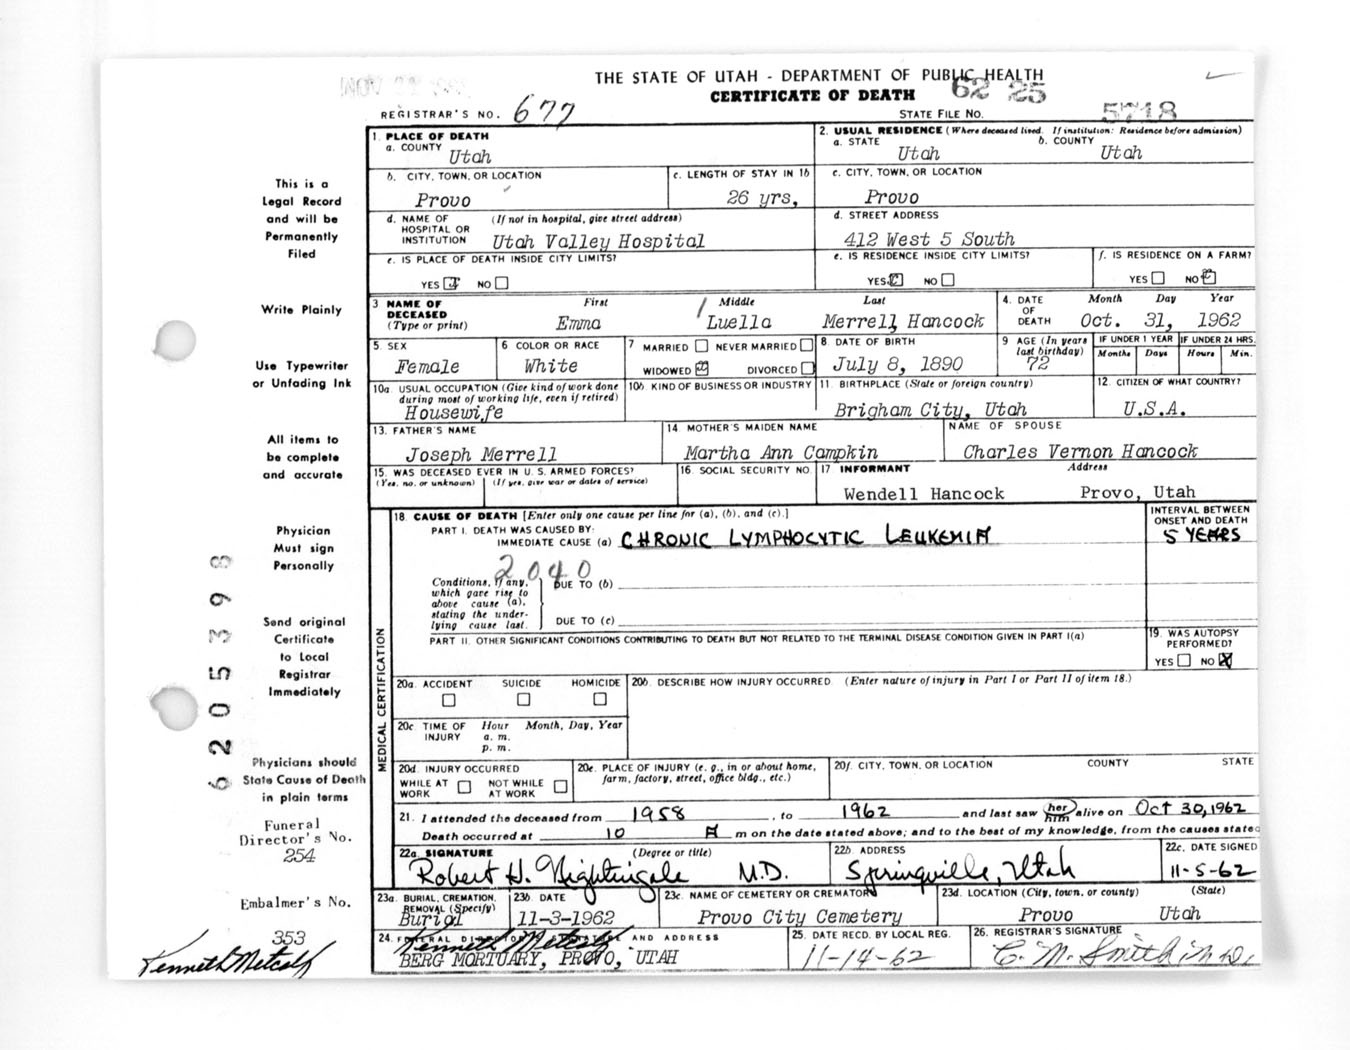 THE STATE OF UTAH - DEPARTMENT OF PUBLIC HEALTH
CERTIFICATE OF DEATH 62 25
REGISTRAR'S NO. 677 STATE FILE NO. 5718
1. PLACE OF DEATH
a. COUNTY Utah
2. USUAL RESIDENCE (Where deceased lived. If institution: Residence before admission)
a. STATE Utah b. COUNTY Utah
b. CITY, TOWN, OR LOCATION Provo
c. LENGTH OF STAY IN 1b 26 yrs,
c. CITY, TOWN, OR LOCATION Provo
d. NAME OF HOSPITAL OR INSTITUTION (If not in hospital, give street address) Utah Valley Hospital
d. STREET ADDRESS 412 West 5 South
e. IS PLACE OF DEATH INSIDE CITY LIMITS?
YES NO
e. IS RESIDENCE INSIDE CITY LIMITS?
YES NO
f. IS RESIDENCE ON A FARM?
YES NO
3 NAME OF DECEASED (Type or print) First Middle Last
Emma Luella Merrell Hancock
4. DATE OF DEATH Month Day Year
Oct. 31, 1962
5. SEX Female
6 COLOR OR RACE White
7 MARRIED NEVER MARRIED
WIDOWED DIVORCED
8. DATE OF BIRTH July 8, 1890
9 AGE (In years last birthday) 72
IF UNDER 1 YEAR Months Days
IF UNDER 24 HRS. Hours Min.
10a. USUAL OCCUPATION (Give kind of work done during most of working life, even if retired)
Housewife
10b. KIND OF BUSINESS OR INDUSTRY
11. BIRTHPLACE (State or foreign country)
Brigham City, Utah
12. CITIZEN OF WHAT COUNTRY?
U.S.A.
13. FATHER'S NAME
Joseph Merrell
14 MOTHER'S MAIDEN NAME
Martha Ann Campkin
NAME OF SPOUSE
Charles Vernon Hancock
15. WAS DECEASED EVER IN U. S. ARMED FORCES?
(Yes, no, or unknown) (If yes, give war or dates of service)
16. SOCIAL SECURITY NO.
17 INFORMANT Address
Wendell Hancock Provo, Utah
MEDICAL CERTIFICATION
18. CAUSE OF DEATH [Enter only one cause per line for (a), (b), and (c).]
PART I. DEATH WAS CAUSED BY:
IMMEDIATE CAUSE (a) CHRONIC LYMPHOCYTIC LEUKEMIA
INTERVAL BETWEEN ONSET AND DEATH
5 YEARS
2040
Conditions, if any, which gave rise to above cause (a), stating the underlying cause last.
DUE TO (b)
DUE TO (c)
PART II. OTHER SIGNIFICANT CONDITIONS CONTRIBUTING TO DEATH BUT NOT RELATED TO THE TERMINAL DISEASE CONDITION GIVEN IN PART I(a)
19. WAS AUTOPSY PERFORMED?
YES NO X
20a. ACCIDENT SUICIDE HOMICIDE
20b. DESCRIBE HOW INJURY OCCURRED. (Enter nature of injury in Part I or Part II of item 18.)
20c TIME OF INJURY Hour Month, Day, Year
a. m.
p. m.
20d. INJURY OCCURRED
WHILE AT WORK NOT WHILE AT WORK
20e. PLACE OF INJURY (e. g., in or about home, farm, factory, street, office bldg., etc.)
20f. CITY, TOWN, OR LOCATION COUNTY STATE
21. I attended the deceased from 1958, to 1962 and last saw her him alive on Oct 30, 1962
Death occurred at 10 A m on the date stated above; and to the best of my knowledge, from the causes stated
22a. SIGNATURE (Degree or title)
Robert H. Nightingale M.D.
22b. ADDRESS
Springville, Utah
22c. DATE SIGNED
11-5-62
23a. BURIAL, CREMATION, REMOVAL (Specify)
Burial
23b. DATE
11-3-1962
23c. NAME OF CEMETERY OR CREMATORY
Provo City Cemetery
23d. LOCATION (City, town, or county) (State)
Provo Utah
24. FUNERAL DIRECTOR'S SIGNATURE AND ADDRESS
Kenneth Metcalf
BERG MORTUARY, PROVO, UTAH
25. DATE RECD. BY LOCAL REG.
11-14-62
26. REGISTRAR'S SIGNATURE
C. M. Smith M.D.
This is a
Legal Record
and will be
Permanently
Filed
Write Plainly
Use Typewriter
or Unfading Ink
All items to
be complete
and accurate
Physician
Must sign
Personally
Send original
Certificate
to Local
Registrar
Immediately
Physicians should
State Cause of Death
in plain terms
Funeral
Director's No.
254
Embalmer's No.
353
Kenneth Metcalf